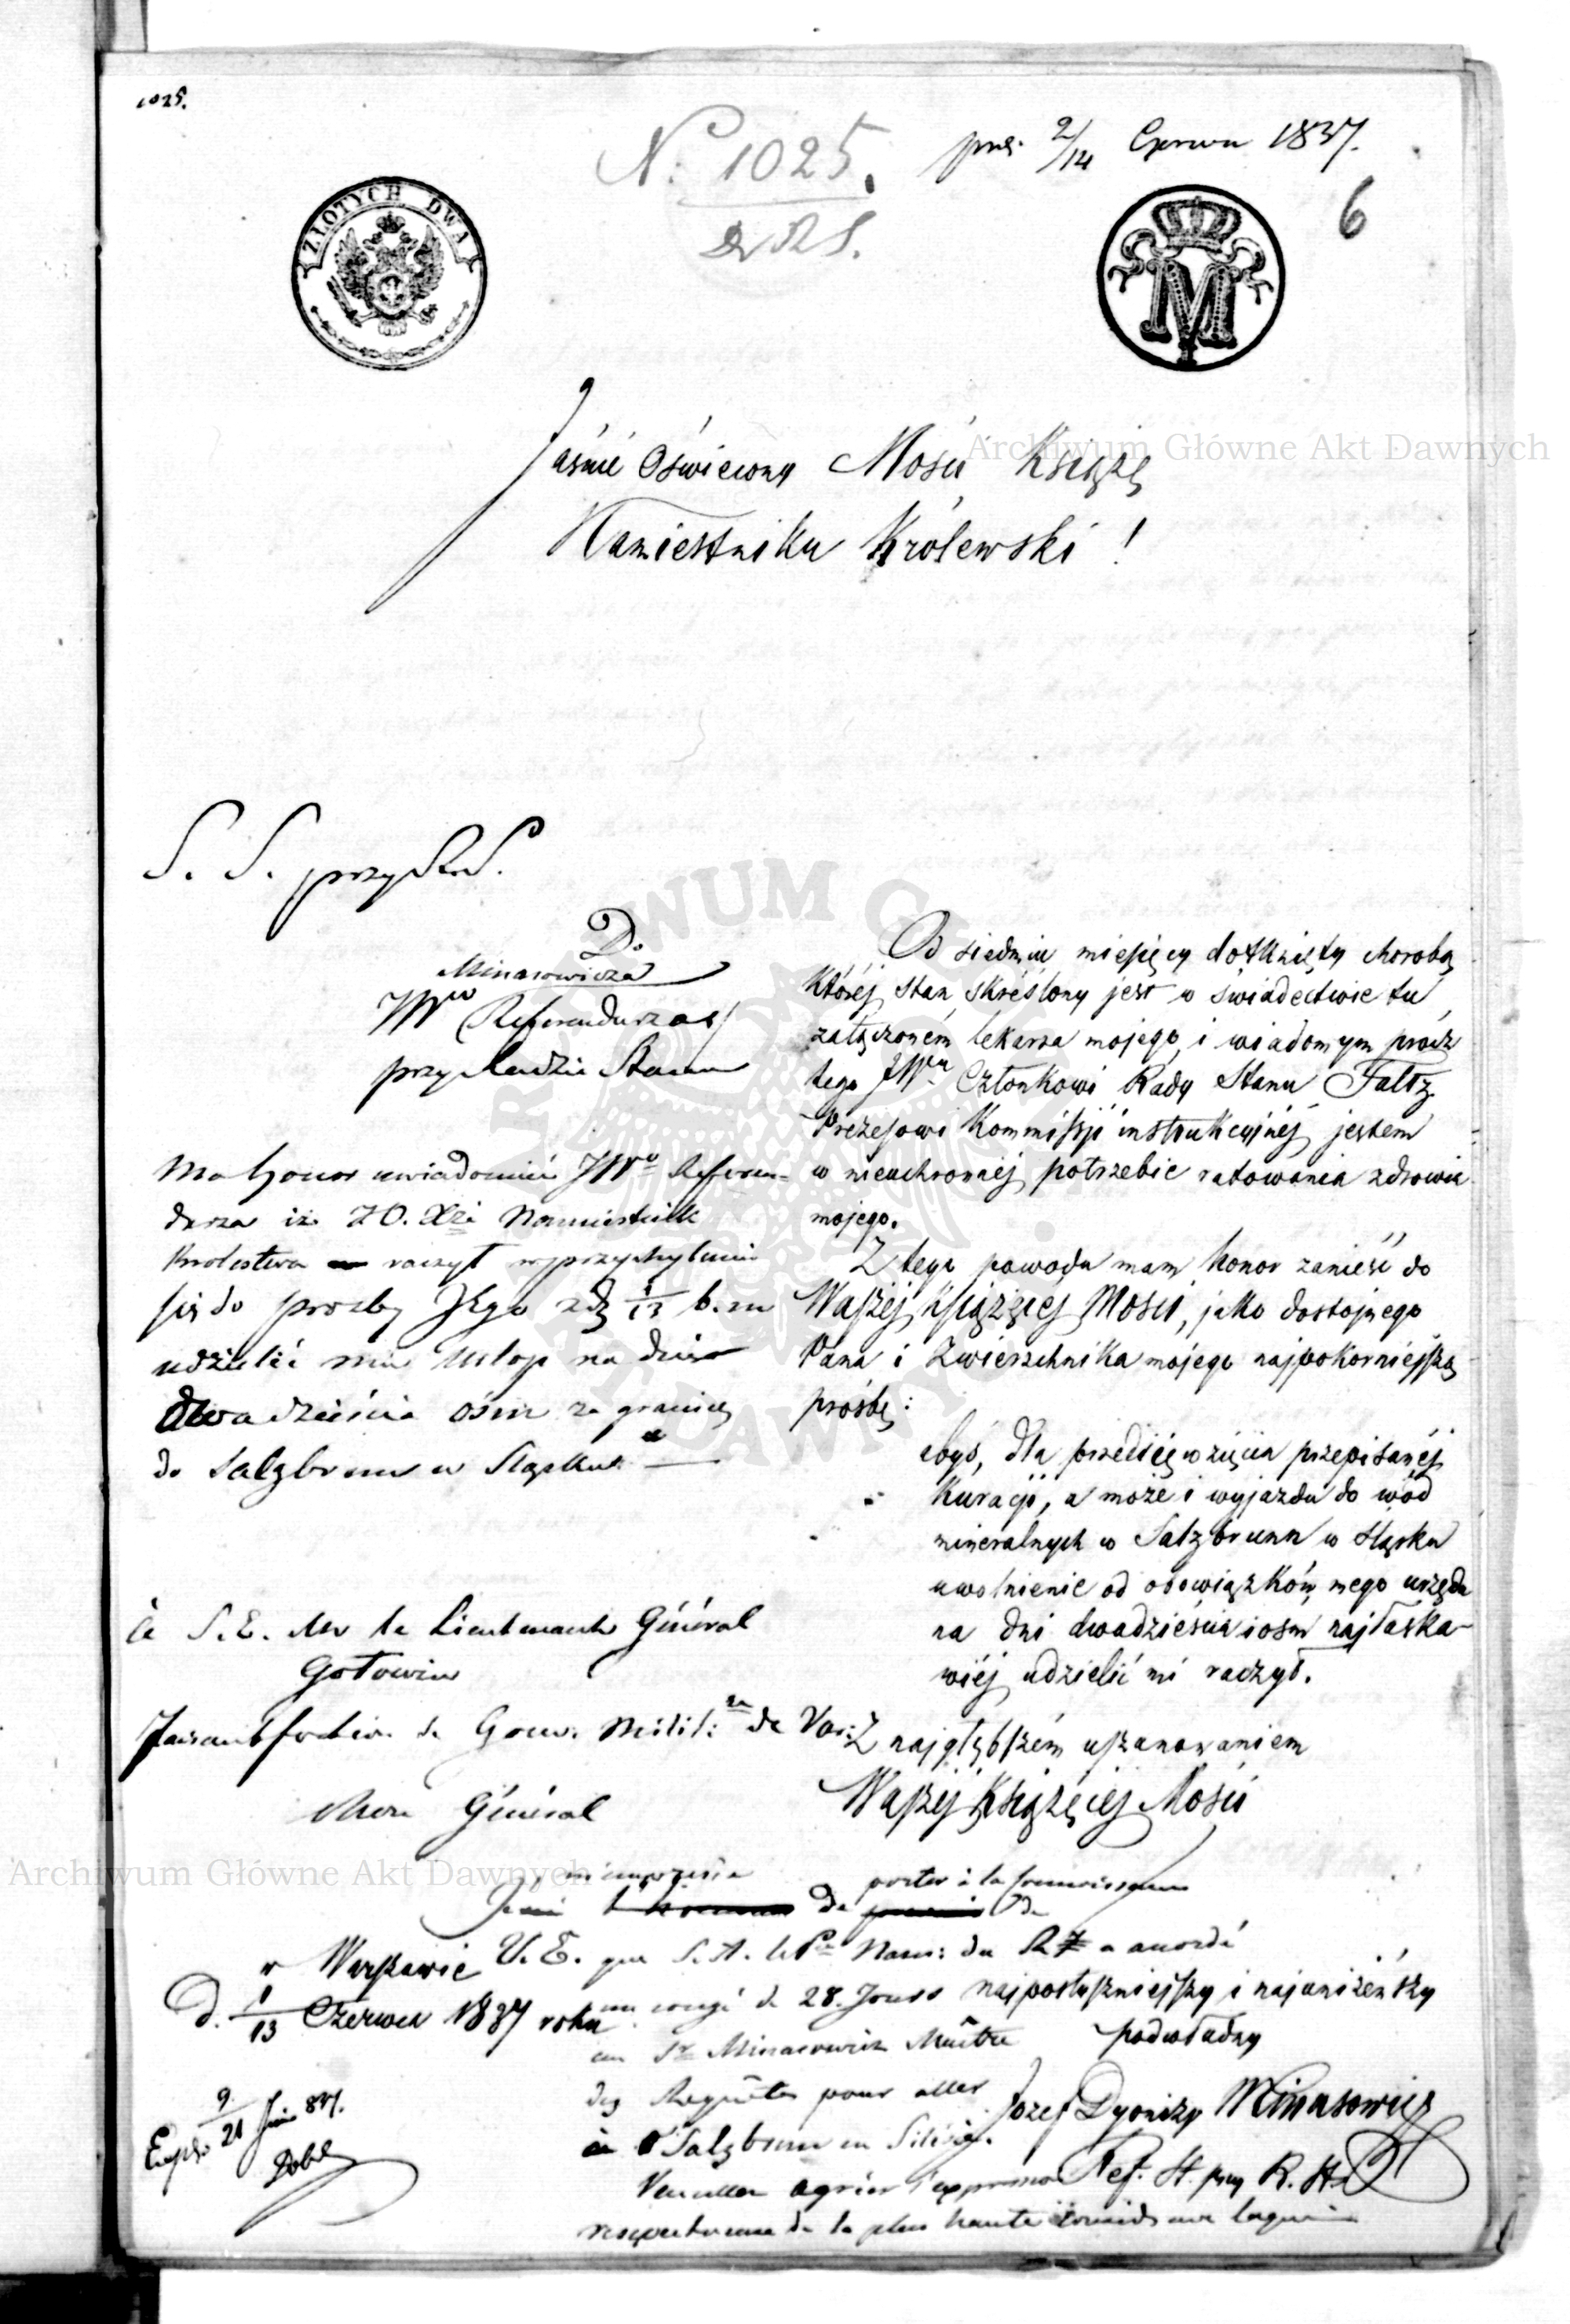 1025.
N: 1025.
R S.
prez. 2/14 Czerwca 1837.
6
ZŁOTYCH DWA
M
Jaśnie Oświecony Mości Książę
Namiestniku Królewski !
S. S. przy R. S.
Do
Minasowicza
JWo Referendarza
przy Radzie Stanu
Ma honor uwiadomić JWo Referen-
darza iż J. O. Xże Namiestnik
Królestwa raczył w przychyleniu
się do prośby Jego z d. 1/13 b. m
udzielić mu Urlop na dni
dwadzieścia ośm za granicę
do Salzbrunn w Sląsku
Od siedmiu miesięcy dotknięty chorobą
której stan skreślony jest w świadectwie tu
załączoném lekarza mojego, i wiadomym prócz
tego JWu Członkowi Rady Stanu Faltz
Prezesowi Kommissji instrukcyjnéj jestem
w nieuchronnéj potrzebie ratowania zdrowia
mojego.
Z tego powodu mam honor zanieść do
Waszéj Książęcéj Mości, jako dostojnego
Pana i Zwierzchnika mojego najpokorniejszą
prośbę:
abyś, dla przedsięwzięcia przepisanéj
Kuracji, a może i wyjazdu do wód
mineralnych w Salzbrunn w Sląsku
uwolnienie od obowiązków mego urzędu
na dni dwadzieścia i ośm najłaska-
wiéj udzielić mi raczył.
Z najgłębszém uszanowaniem
Waszéj Książęcéj Mości
najposłuszniejszy i najuniżeńszy
podwładny
Jozef Dyonizy Minasowicz
Ref. St. przy R. St.
w Warszawie
D. 1/13 Czerwca 1837 roku
à S. E. Mr le Lieutenant Général
Gołowin
faisant fonction de Gouv. Milit: de Var:
Mon Général
J'ai de porter à la connaissance de
V. E. que S. A. le Pce Nam: du R a accordé
un congé de 28. Jours
au Sr Minasowicz Maître
des Requêtes pour aller
à Salzbrunn en Silésie.
Veuillez agréer l'expression
respectueuse de la plus haute considération
9/21 Juin 837.